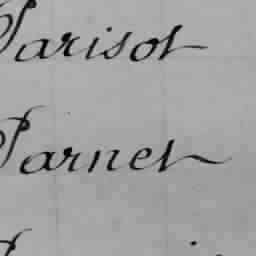 Parisot
Parnet